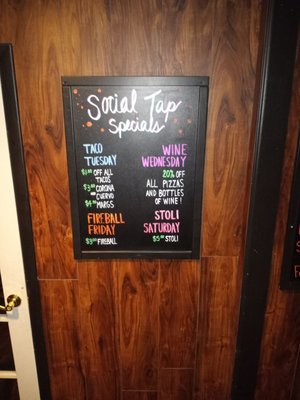 Social Tap
Specials
TACO
TUESDAY
$1.00 OFF ALL
TACOS
$3.00 CORONA
OR
CUERVO
$4.00 MARGS
WINE
WEDNESDAY
20% OFF
ALL PIZZAS
AND BOTTLES
OF WINE!
FIREBALL
FRIDAY
$3.00 FIREBALL
STOLI
SATURDAY
$5.00 STOLI